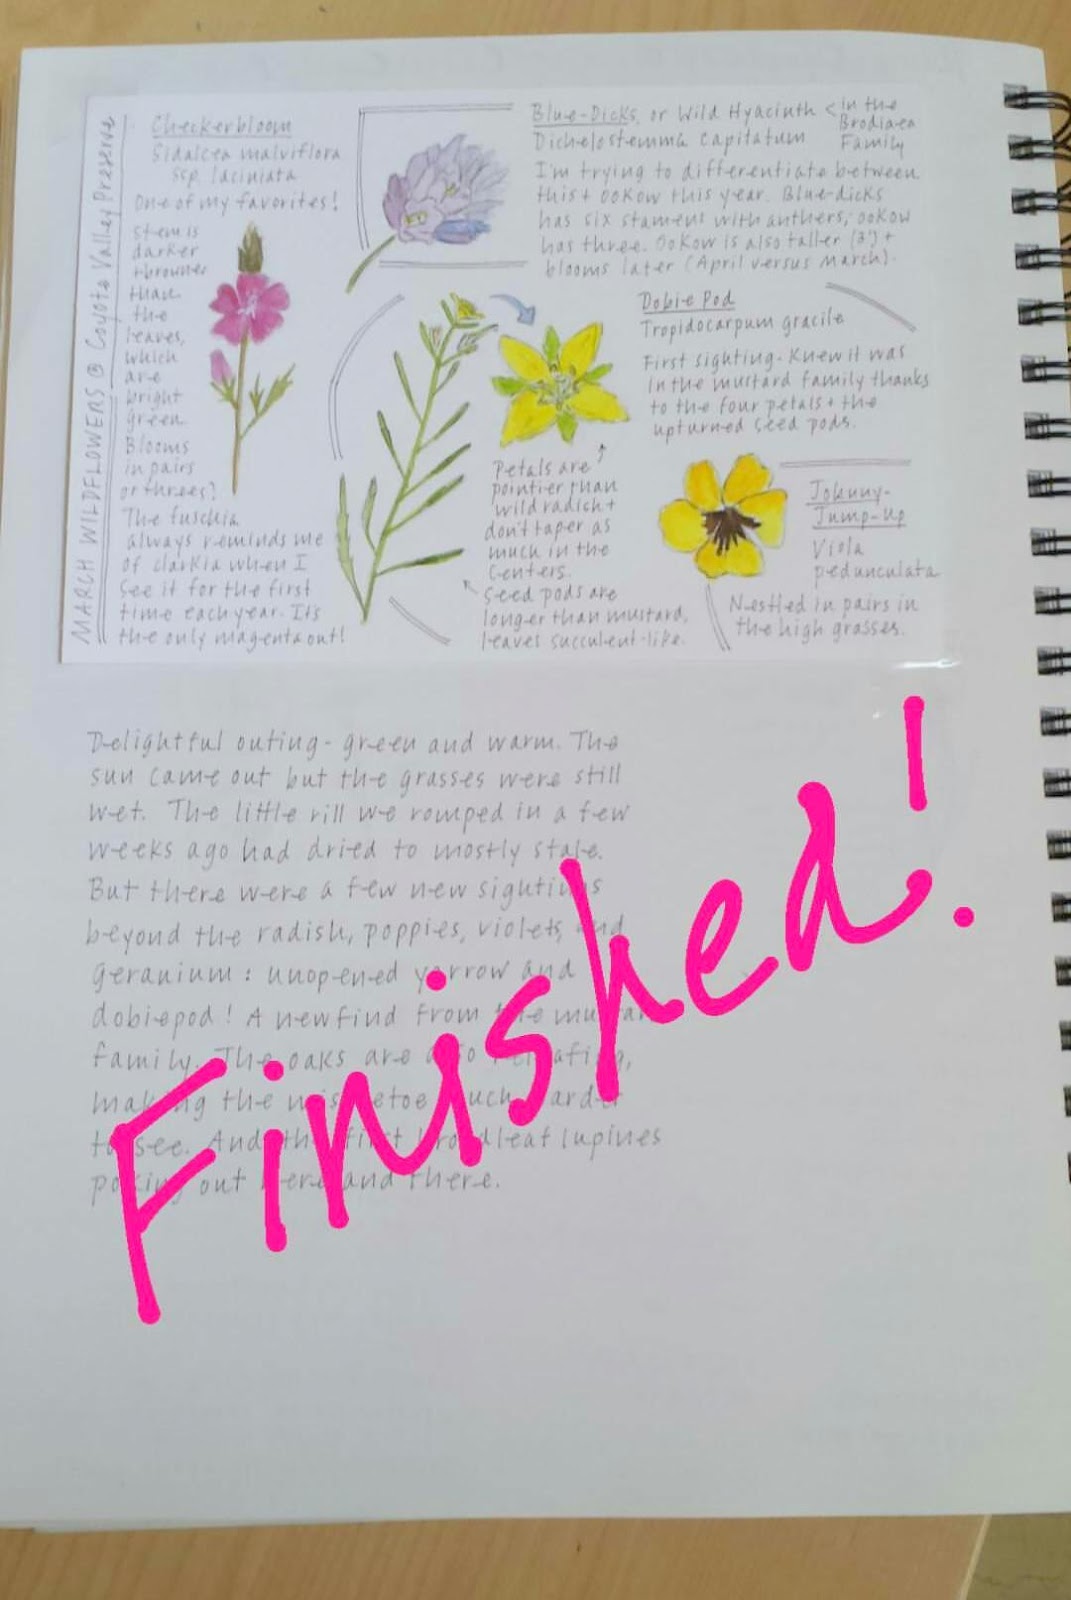 MARCH WILDFLOWERS @ Coyote Valley Preserve
Checkerbloom
Sidalcea malviflora
ssp. laciniata
One of my favorites!
Stem is
darker
+browner
than
the
leaves,
which
are
bright
green.
Blooms
in pairs
or threes?
The fuschia
always reminds me
of clarkia when I
see it for the first
time each year. Its
the only magenta out!
Blue-Dicks, or Wild Hyacinth < in the
Brodiaea
Family
Dichelostemma capitatum
I'm trying to differentiate between
this + Ookow this year. Blue-dicks
has six stamens with anthers; ookow
has three. Ookow is also taller (3') +
blooms later (April versus March).
Dobie Pod
Tropidocarpum gracile
First sighting - Knew it was
in the mustard family thanks
to the four petals + the
upturned seed pods.
Petals are
pointier than
wild radish +
don't taper as
much in the
centers.
Seed pods are
longer than mustard,
leaves succulent-like.
Johnny-
Jump-Up
Viola
pedunculata
Nestled in pairs in
the high grasses.
Delightful outing - green and warm. The
sun came out but the grasses were still
wet. The little rill we romped in a few
weeks ago had dried to mostly stale.
But there were a few new sightings
beyond the radish, poppies, violets, and
geranium: unopened yarrow and
dobiepod! A new find from the mustard
family. The oaks are also releafing,
making the mistletoe much harder
to see. And the first broadleaf lupines
poking out here and there.
Finished!